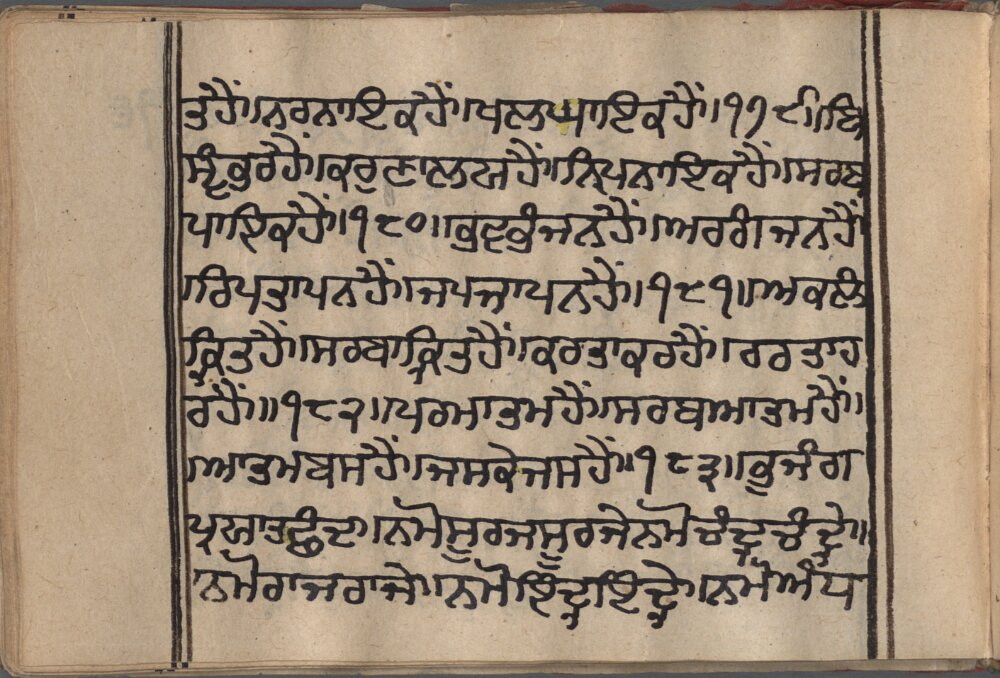 ਤਹੈਂ॥ਨਰਨਾਇਕਹੈਂ॥ਖਲਘਾਇਕਹੈਂ॥੧੭੯॥ਬਿ
ਸ੍ਵੰਭਰਹੈਂ॥ਕਰੁਣਾਲਯਹੈਂ॥ਨ੍ਰਿਪਨਾਇਕਹੈਂ॥ਸਰਬ
ਪਾਇਕਹੈਂ॥੧੮੦॥ਭਵਭੰਜਨਹੈਂ॥ਅਰਗੰਜਨਹੈਂ
॥ਰਿਪਤਾਪਨਹੈਂ॥ਜਪਜਾਪਨਹੈਂ॥੧੮੧॥ਅਕਲੰ
ਕ੍ਰਿਤਹੈਂ॥ਸਰਬਾਕ੍ਰਿਤਹੈਂ॥ਕਰਤਾਕਰਹੈਂ॥ਹਰਤਾਹ
ਰਹੈਂ॥੧੮੨॥ਪਰਮਾਤਮਹੈਂ॥ਸਰਬਆਤਮਹੈਂ॥
॥ਆਤਮਬਸਹੈਂ॥ਜਸਕੇਜਸਹੈਂ॥੧੮੩॥ਭੁਜੰਗ
ਪ੍ਰਯਾਤਛੰਦ॥ਨਮੋਸੂਰਜਸੂਰਜੇਨਮੋਚੰਦ੍ਰਚੰਦ੍ਰੇ॥
ਨਮੋਰਾਜਰਾਜੇ॥ਨਮੋਇੰਦ੍ਰਇੰਦ੍ਰੇ॥ਨਮੋਅੰਧ